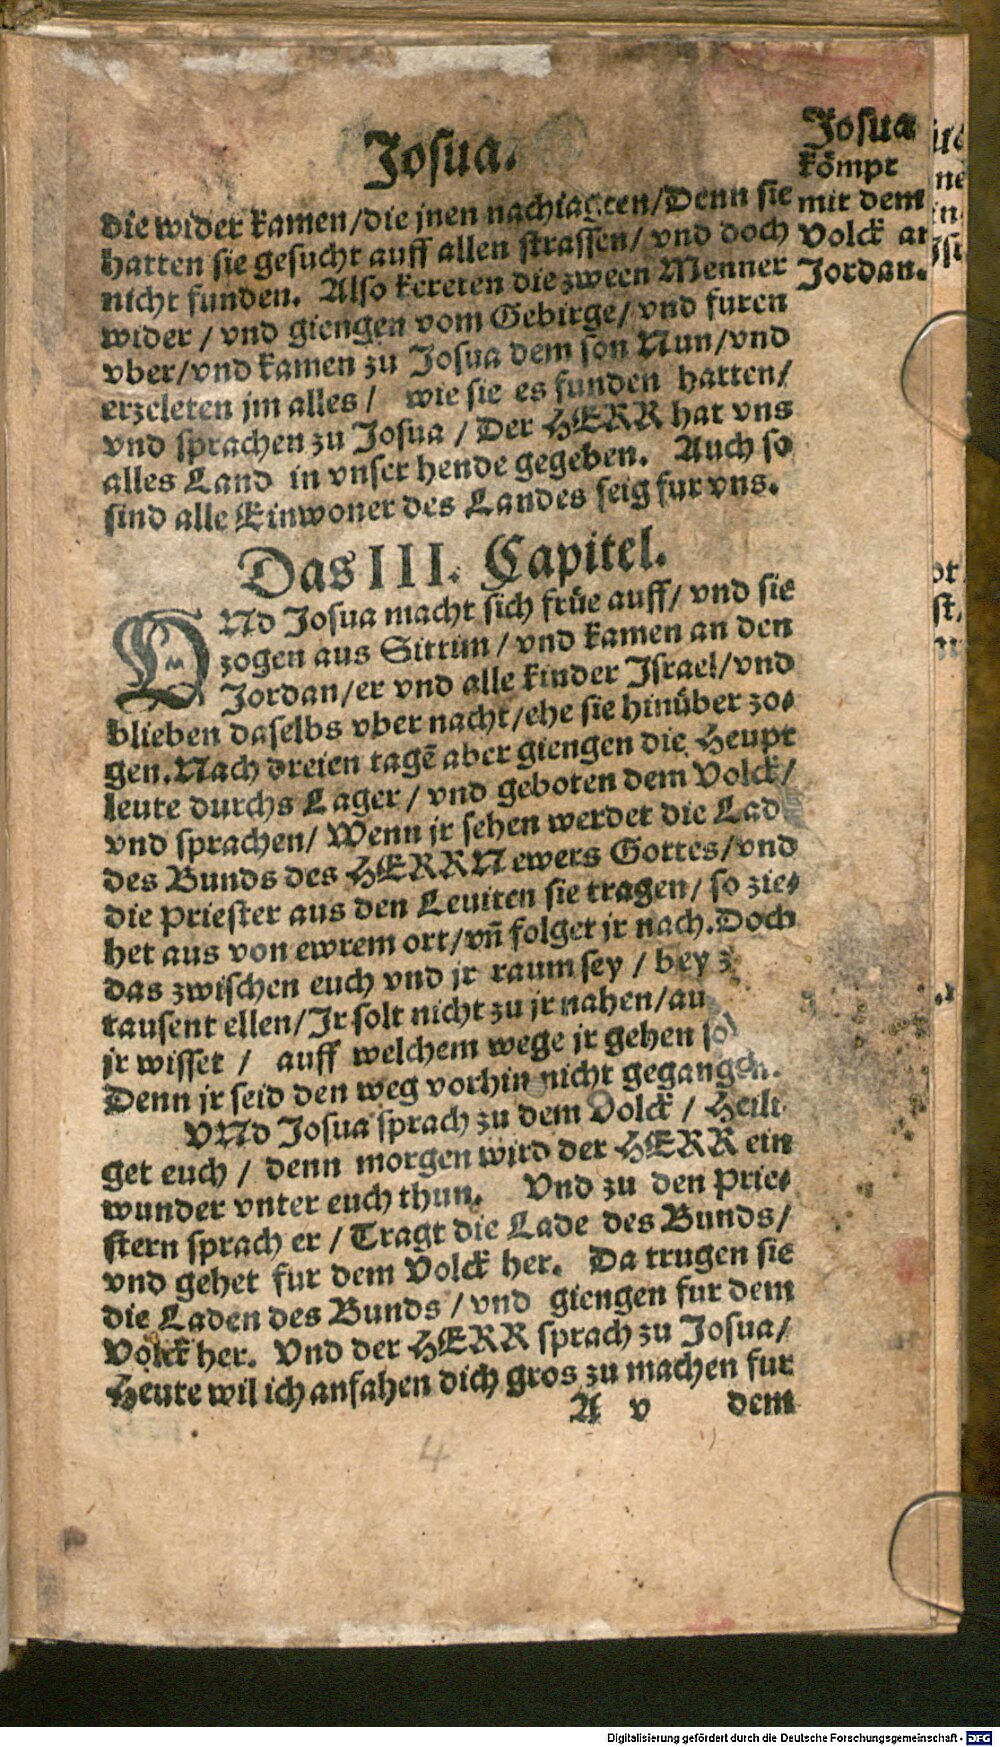 Josua.
die wider kamen/die jnen nachiagten/Denn sie
hatten sie gesucht auff allen strassen/ vnd doch
nicht funden. Also kereten die zween Menner
wider / vnd giengen vom Gebirge/ vnd furen
vber/vnd kamen zu Josua dem son Nun/vnd
erzeleten jm alles / wie sie es funden hatten/
vnd sprachen zu Josua / Der HERR hat vns
alles Land in vnser hende gegeben. Auch so
sind alle Einwoner des Landes feig fur vns.
Josua
kömpt
mit dem
Volck an
Jordan.
Das III. Capitel.
VNd Josua macht sich früe auff/ vnd sie
zogen aus Sittim / vnd kamen an den
Jordan/er vnd alle kinder Jsrael/vnd
blieben daselbs vber nacht/ehe sie hinüber zo-
gen. Nach dreien tagē aber giengen die Heupt
leute durchs Lager / vnd geboten dem Volck/
vnd sprachen/ Wenn jr sehen werdet die Lad
des Bunds des HERRN ewers Gottes/vnd
die Priester aus den Leuiten sie tragen/ so zie-
het aus von ewrem ort/vn̄ folget jr nach. Doch
das zwischen euch vnd jr raum sey / bey
tausent ellen/Jr solt nicht zu jr nahen/
jr wisset / auff welchem wege jr gehen
Denn jr seid den weg vorhin nicht gegangen.
VNd Josua sprach zu dem Volck / Heili
get euch / denn morgen wird der HERR ein
wunder vnter euch thun. Vnd zu den Prie-
stern sprach er / Tragt die Lade des Bunds/
vnd gehet fur dem Volck her. Da trugen sie
die Laden des Bunds / vnd giengen fur dem
Volck her. Vnd der HERR sprach zu Josua/
Heute wil ich anfahen dich gros zu machen fur
A v dem
4
Digitalisierung gefördert durch die Deutsche Forschungsgemeinschaft - DFG